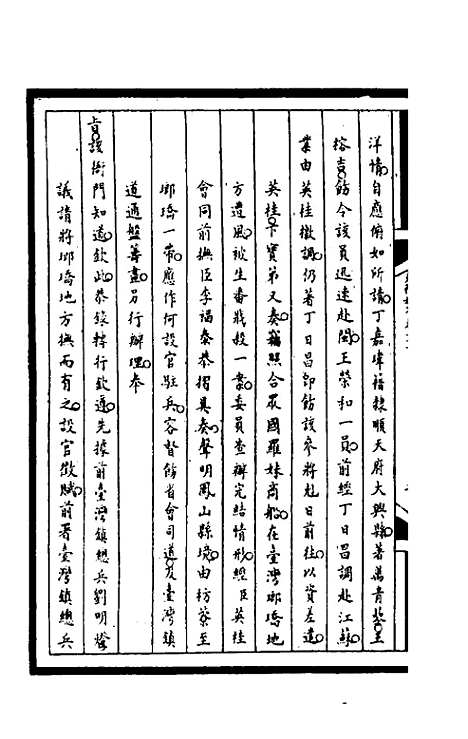 洋情自應俯如所請丁嘉瑋籍隸順天府大興縣著萬青藜王
榕吉飭令該員迅速赴閩王榮和一員前經丁日昌調赴江蘇
業由英桂檄調仍著丁日昌即飭該參將尅日前往以資差遣
英桂卞寶第又奏稱照合眾國羅妹商船在臺灣瑯𤩝地
方遭風被生番戕殺一案委員查辦完結情形經臣英桂
會同前撫臣李福泰恭摺具奏聲明鳳山縣境由枋寮至
瑯𤩝一帶應作何設官駐兵容督飭省會司道及臺灣鎮
道通盤籌畫另行辦理奉
旨該衙門知道欽此恭錄轉行欽遵先據前臺灣鎮總兵劉明燈
議請將瑯𤩝地方撫而有之設官徵賦前署臺灣鎮總兵